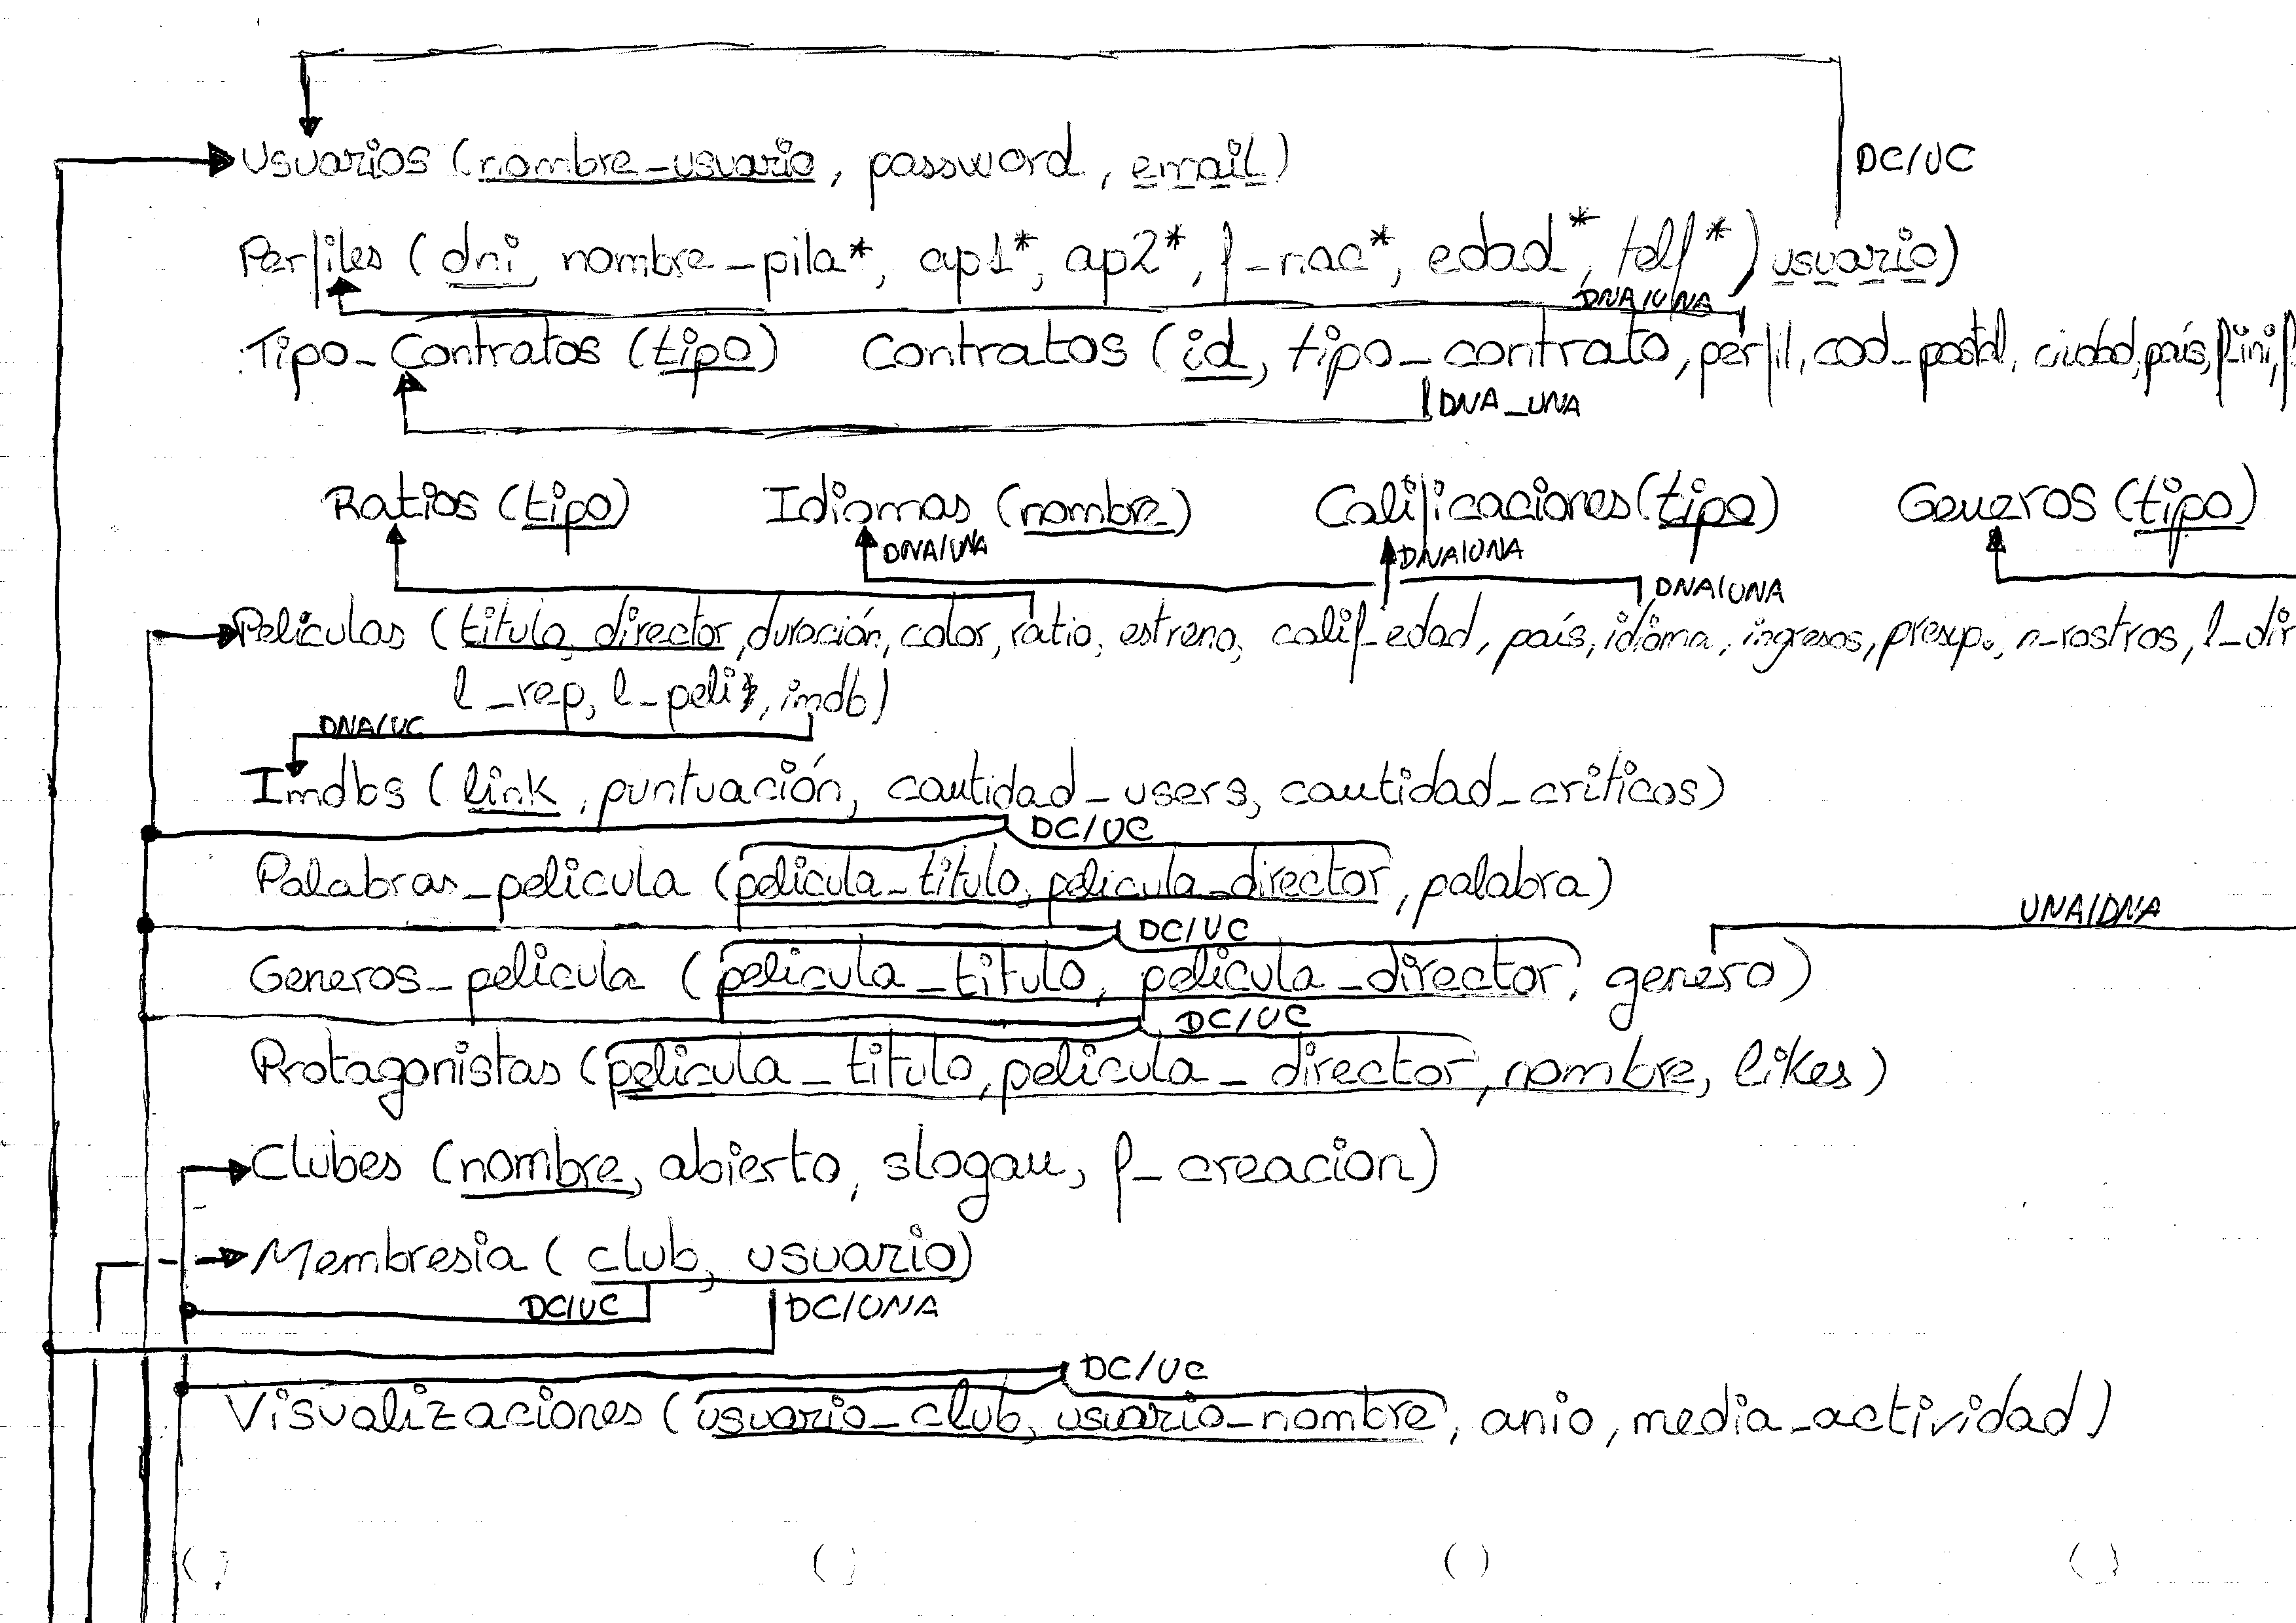 Usuarios (nombre_usuario, password, email)
DC/UC
Perfiles (dni, nombre_pila*, ap1*, ap2*, f_nac*, edad*, telf*) usuario)
DNA/UNA
Tipo_Contratos (tipo) Contratos (id, tipo_contrato, perfil, cod_postal, ciudad, país, f_ini, f
DNA_UNA
Ratios (tipo) Idiomas (nombre) Calificaciones (tipo) Generos (tipo)
DNA/UNA DNA/UNA DNA/UNA
Películas (titulo, director, duración, color, ratio, estreno, calif_edad, país, idioma, ingresos, presup., n_rostros, l_dir
l_rep, l_peli, imdb)
DNA/UC
Imdbs (link, puntuación, cantidad_users, cantidad_criticos)
DC/UC
Palabras_pelicula (pelicula_titulo, pelicula_director, palabra)
DC/UC UNA/DNA
Generos_pelicula (pelicula_titulo, pelicula_director, genero)
DC/UC
Protagonistas (pelicula_titulo, pelicula_director, nombre, likes)
Clubes (nombre, abierto, slogan, f_creacion)
Membresia (club, usuario)
DC/UC DC/UNA
DC/UC
Visualizaciones (usuario_club, usuario_nombre, anio, media_actividad)